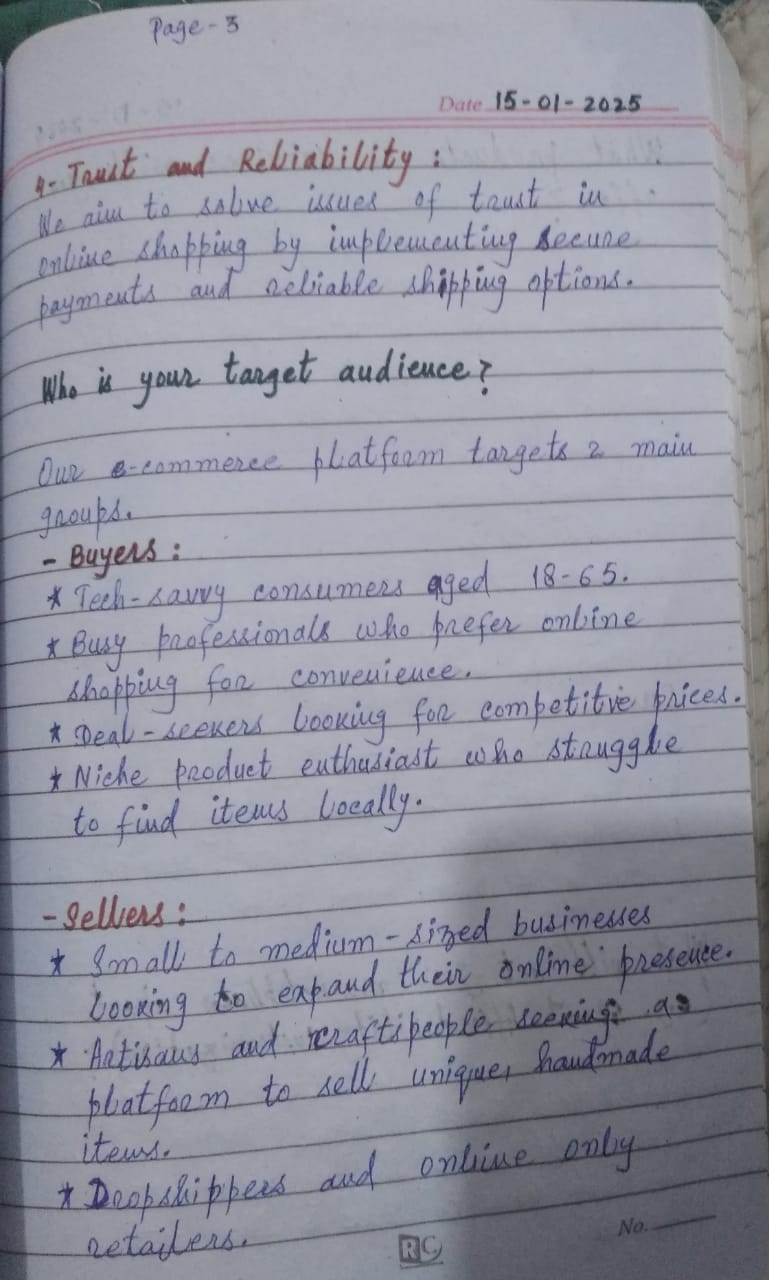 Page - 3
Date 15-01-2025
4- Trust and Reliability :
We aim to solve issues of trust in
online shopping by implementing secure
payments and reliable shipping options.
Who is your target audience?
Our e-commerce platform targets 2 main
groups.
- Buyers :
* Tech-savvy consumers aged 18-65.
* Busy professionals who prefer online
shopping for convenience.
* Deal-seekers looking for competitive prices.
* Niche product enthusiast who struggle
to find items locally.
- Sellers :
* Small to medium-sized businesses
looking to expand their online presence.
* Artisans and craftspeople seeking a
platform to sell unique, handmade
items.
* Dropshippers and online only
retailers.
No.
RC